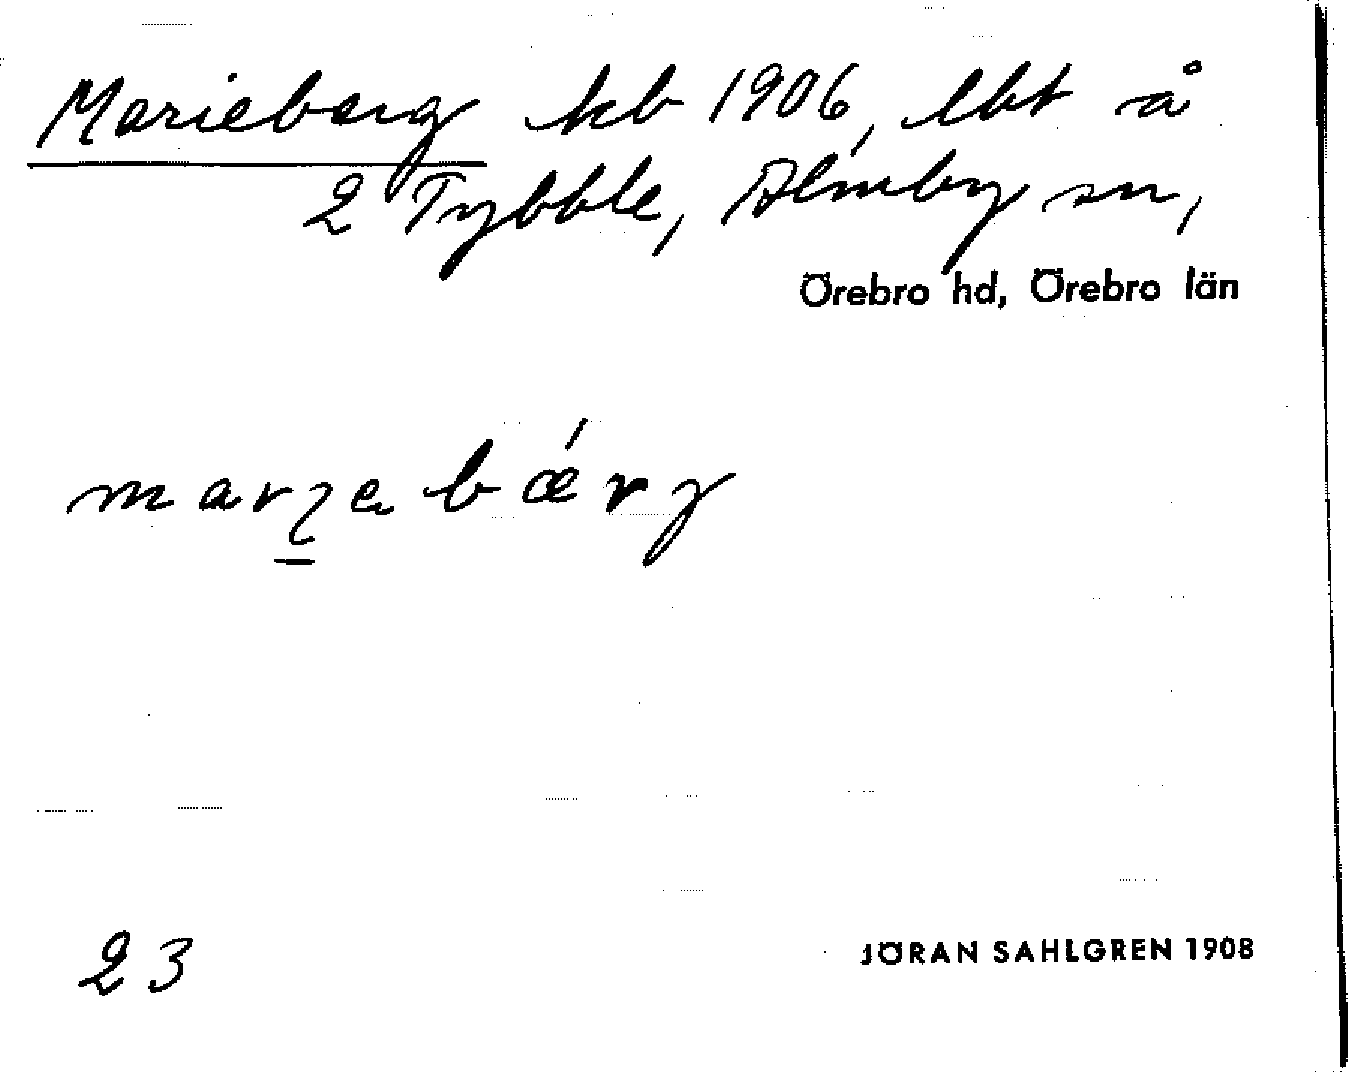 Marieberg kb 1906, lbt å
2 Tybble, Almby sn,
Örebro hd, Örebro län
marɩ̱ebǽrg
23
JÖRAN SAHLGREN 1908